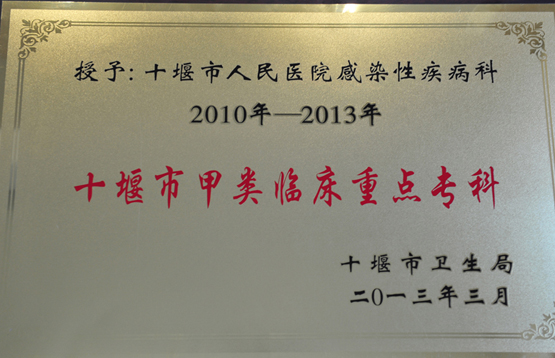 授予:十堰市人民医院感染性疾病科
2010年—2013年
十堰市甲类临床重点专科
十堰市卫生局
二0一三年三月